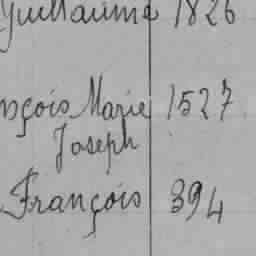 Guillaume 1826
nçois Marie 1527
Joseph
François 394